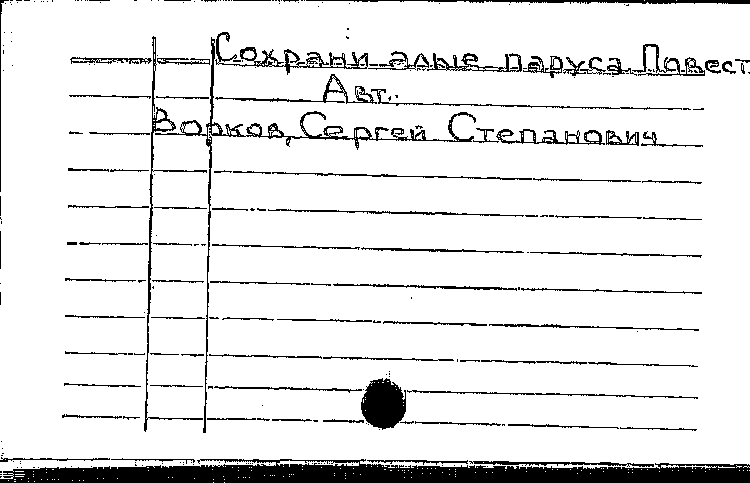 Сохрани алые паруса Повест
Авт.:
Ворков, Сергей Степанович